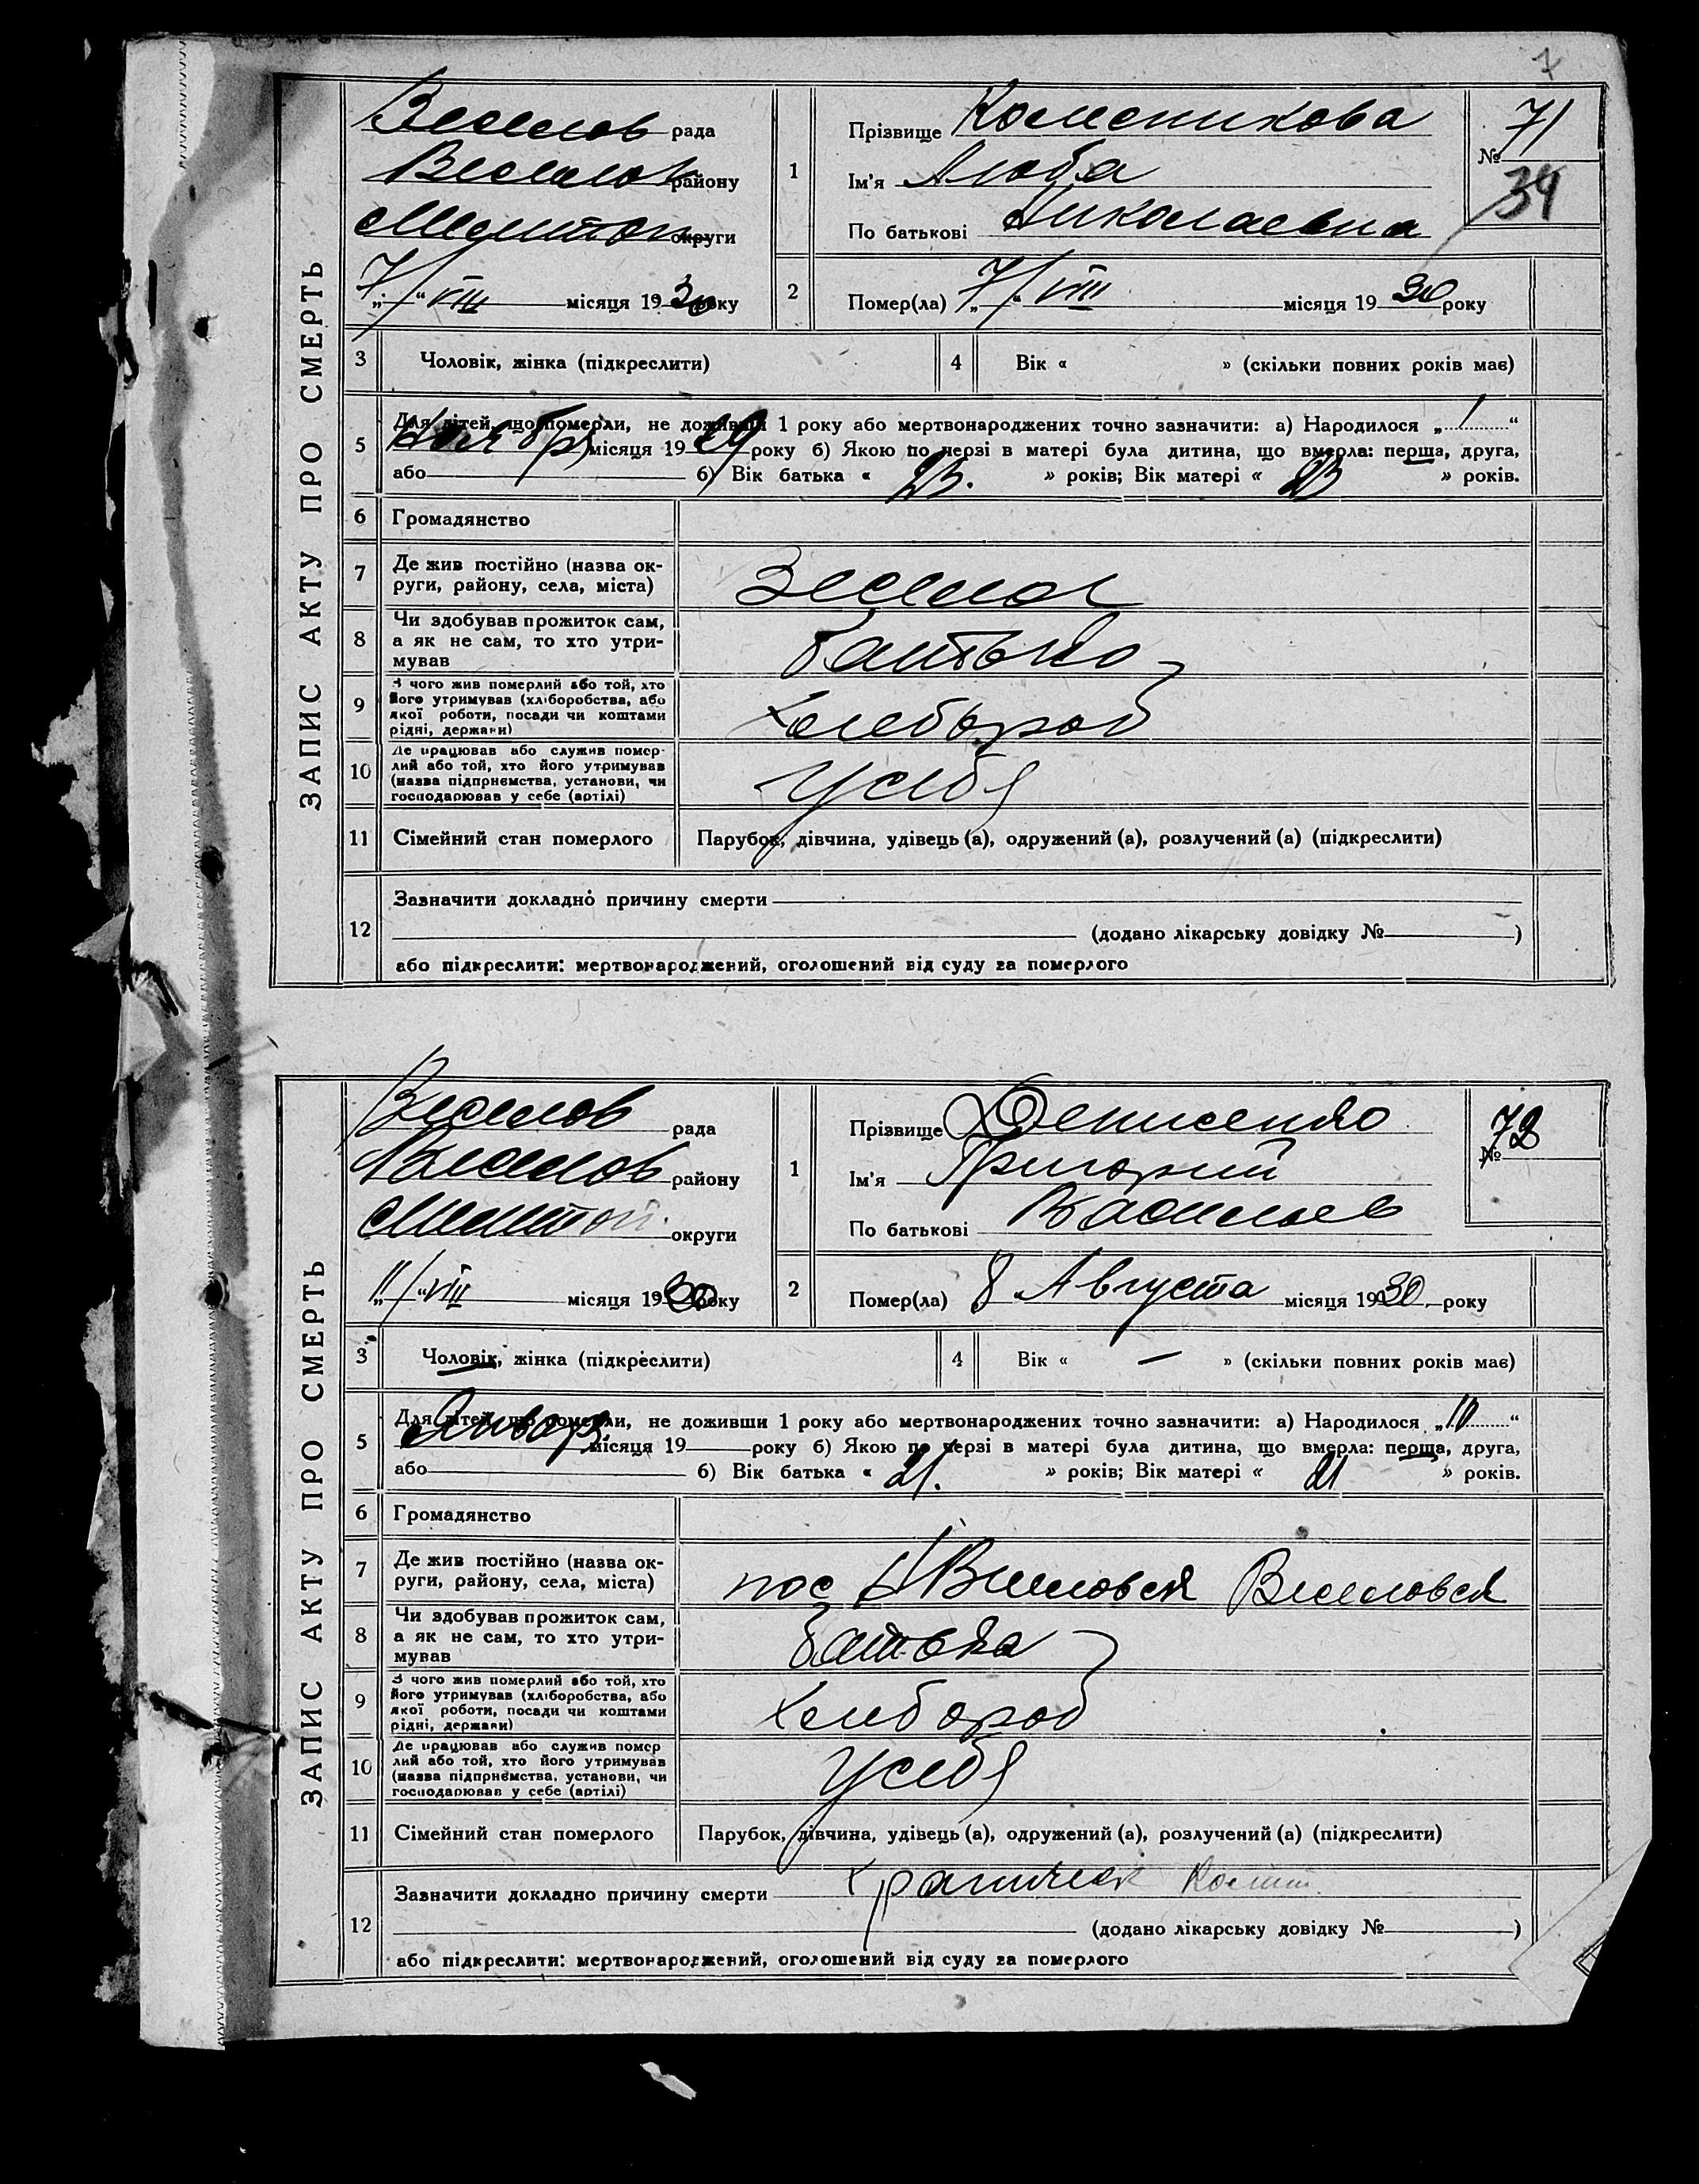 7
ЗАПИС АКТУ ПРО СМЕРТЬ
Веселов рада
Веселов району
Мелитоп округи
„7“ VIII місяця 1930 року
1
Прізвище Колесникова
Ім'я Люба
По батькові Николаевна
№ 71
34
2
Помер(ла) „7“ VIII місяця 1930 року
3 Чоловік, жінка (підкреслити)
4 Вік « » (скільки повних років має)
5 Для дітей, що померли, не доживши 1 року або мертвонароджених точно зазначити: а) Народилося „1“
Ноября місяця 1929 року б) Якою по черзі в матері була дитина, що вмерла: перша, друга,
або б) Вік батька « 23. » років; Вік матері « 23 » років.
6 Громадянство
7 Де жив постійно (назва ок-
руги, району, села, міста)
Веселов
8 Чи здобував прожиток сам,
а як не сам, то хто утри-
мував
батько
9 З чого жив померлий або той, хто
його утримував (хліборобства, або
якої роботи, посади чи коштами
рідні, держави)
хлебороб
10 Де працював або служив помер-
лий або той, хто його утримував
(назва підприємства, установи, чи
господарював у себе (артілі)
у себя
11 Сімейний стан померлого Парубок, дівчина, удівець (а), одружений (а), розлучений (а) (підкреслити)
12 Зазначити докладно причину смерти
(додано лікарську довідку № )
або підкреслити: мертвонароджений, оголошений від суду за померлого
ЗАПИС АКТУ ПРО СМЕРТЬ
Веселов рада
Веселов району
Мелитоп. округи
„11“ VIII місяця 1930 року
1
Прізвище Денисенко
Ім'я Григорий
По батькові Васильев
№ 72
2
Помер(ла) 8 Августа місяця 1930 року
3 Чоловік, жінка (підкреслити)
4 Вік « — » (скільки повних років має)
5 Для дітей, що померли, не доживши 1 року або мертвонароджених точно зазначити: а) Народилося „10“
Январ місяця 19 року б) Якою по черзі в матері була дитина, що вмерла: перша, друга,
або б) Вік батька « 21. » років; Вік матері « 21 » років.
6 Громадянство
7 Де жив постійно (назва ок-
руги, району, села, міста)
пос Веселовск
8 Чи здобував прожиток сам,
а як не сам, то хто утри-
мував
батька
9 З чого жив померлий або той, хто
його утримував (хліборобства, або
якої роботи, посади чи коштами
рідні, держави)
хлебороб
10 Де працював або служив помер
лий або той, хто його утримував
(назва підприємства, установи, чи
господарював у себе (артілі)
у себя
11 Сімейний стан померлого Парубок, дівчина, удівець (а), одружений (а), розлучений (а) (підкреслити)
12 Зазначити докладно причину смерти
(додано лікарську довідку № )
або підкреслити: мертвонароджений, оголошений від суду за померлого